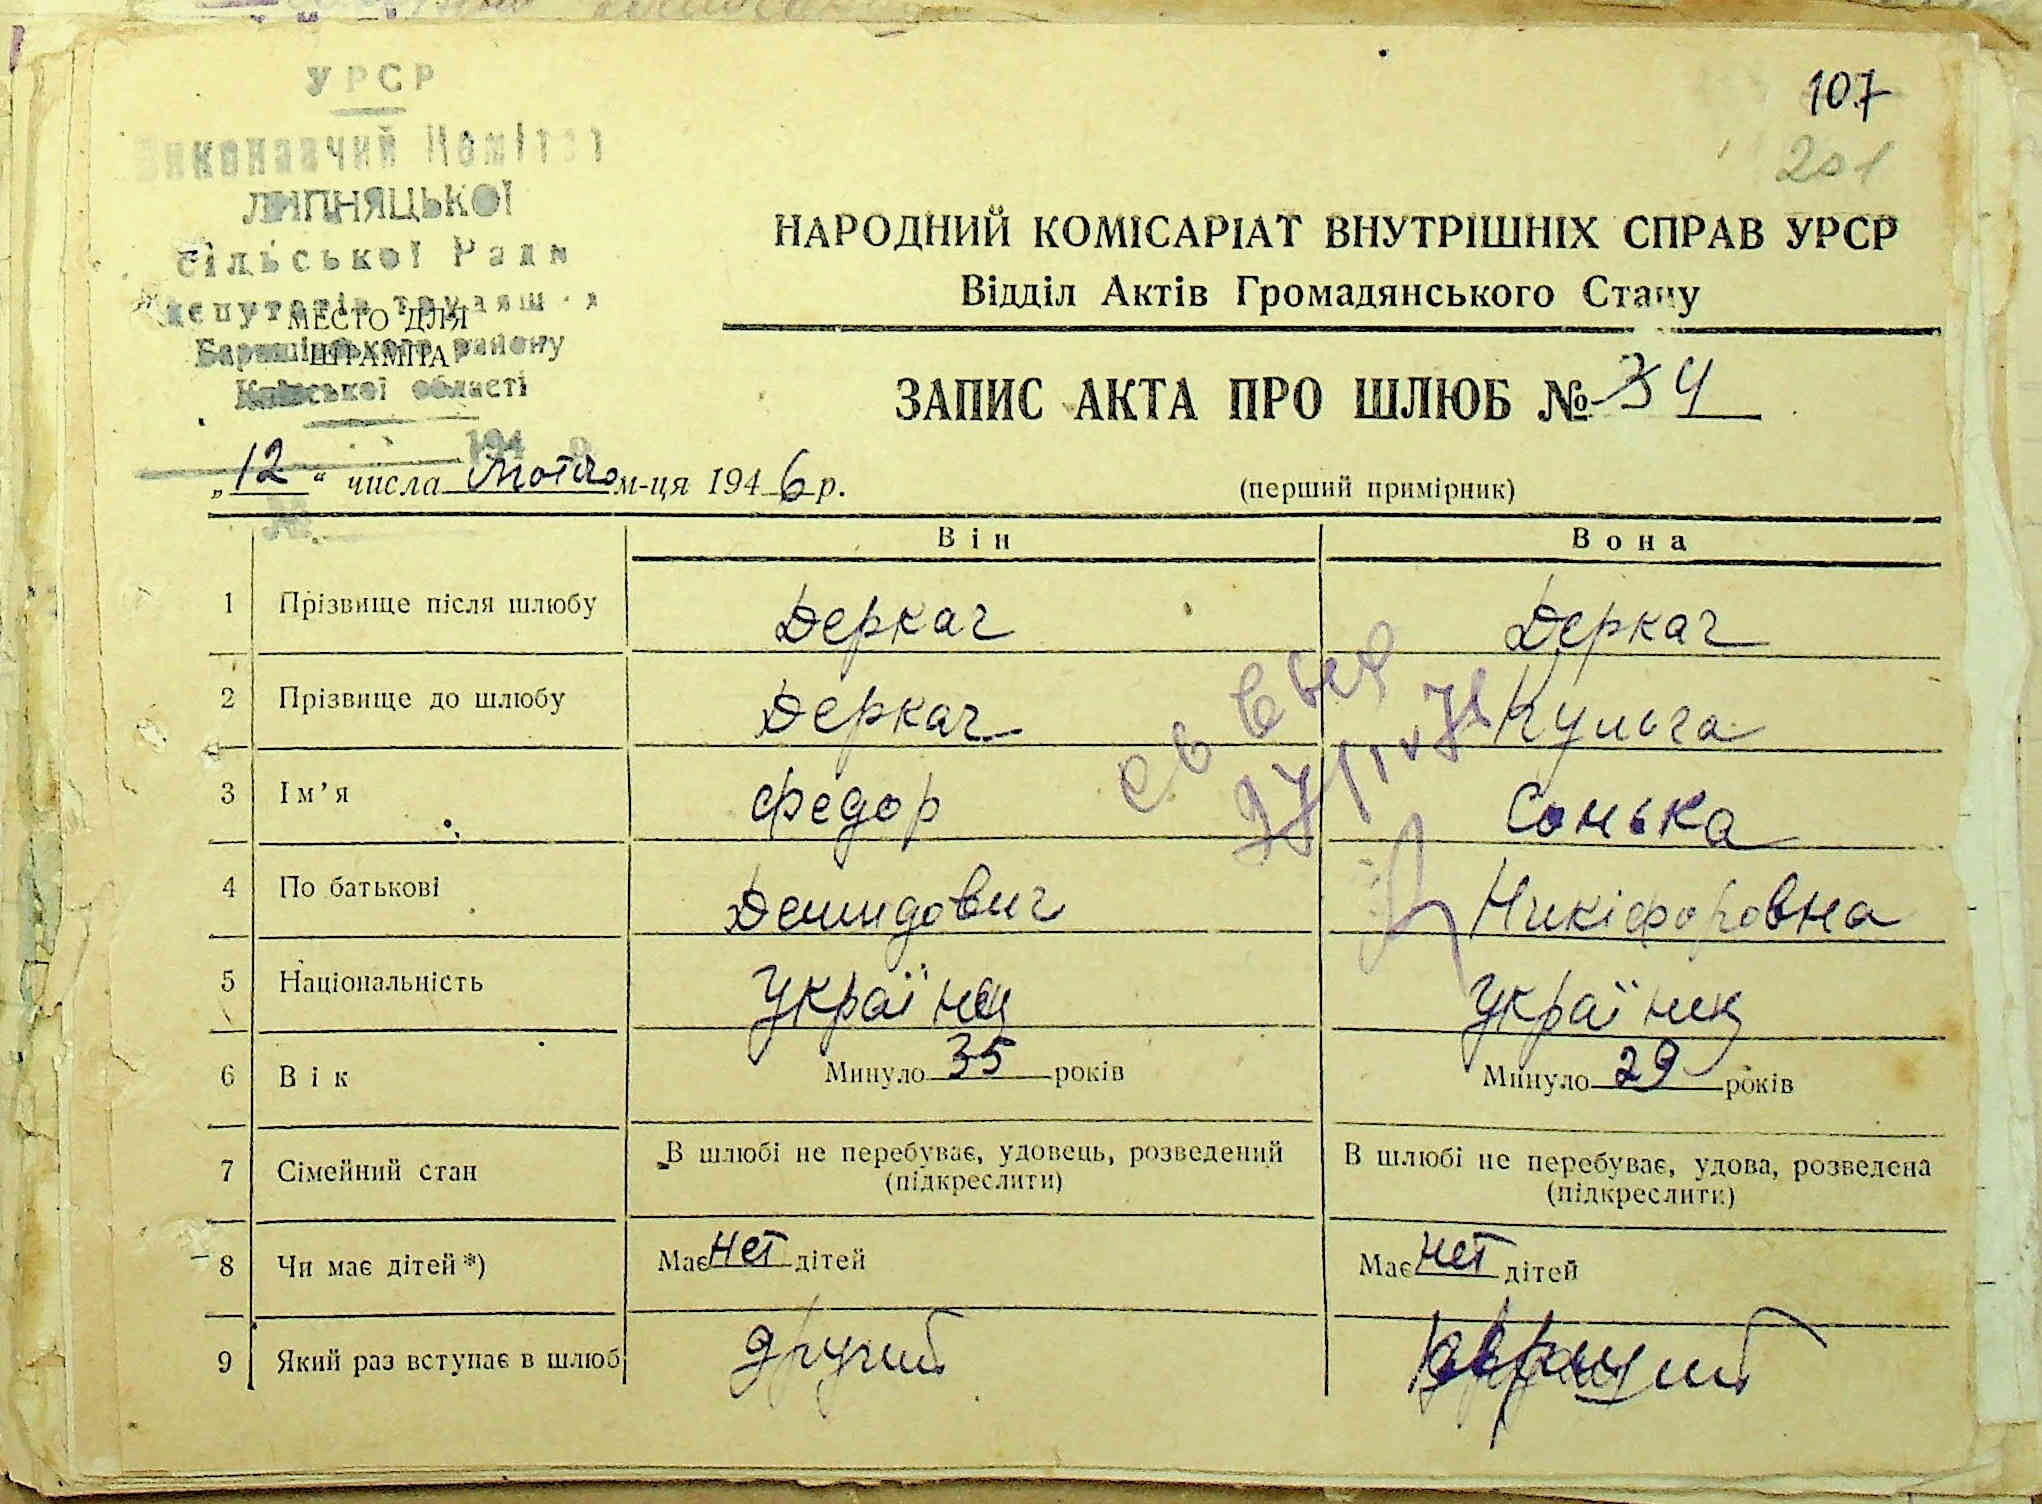 107
201
УРСР
Виконавчий Комітет
ЛИПНЯЦЬКОЇ
сільської Ради
депутатів трудящ
МЕСТО ДЛЯ
ШТАМПА
району
Київської області
194
НАРОДНИЙ КОМІСАРІАТ ВНУТРІШНІХ СПРАВ УРСР
Відділ Актів Громадянського Стану
ЗАПИС АКТА ПРО ШЛЮБ № 34
„12“ числа Лютого м-ця 1946 р.
(перший примірник)
Він Вона
1 Прізвище після шлюбу Деркач Деркач
2 Прізвище до шлюбу Деркач Кульга
3 Ім’я Федор Сонька
4 По батькові Демидович Никіфоровна
5 Національність Українец Українец
6 Вік Минуло 35 років Минуло 29 років
7 Сімейний стан В шлюбі не перебуває, удовець, розведений В шлюбі не перебуває, удова, розведена
(підкреслити) (підкреслити)
8 Чи має дітей*) Має нет дітей Має нет дітей
9 Який раз вступає в шлюб другий